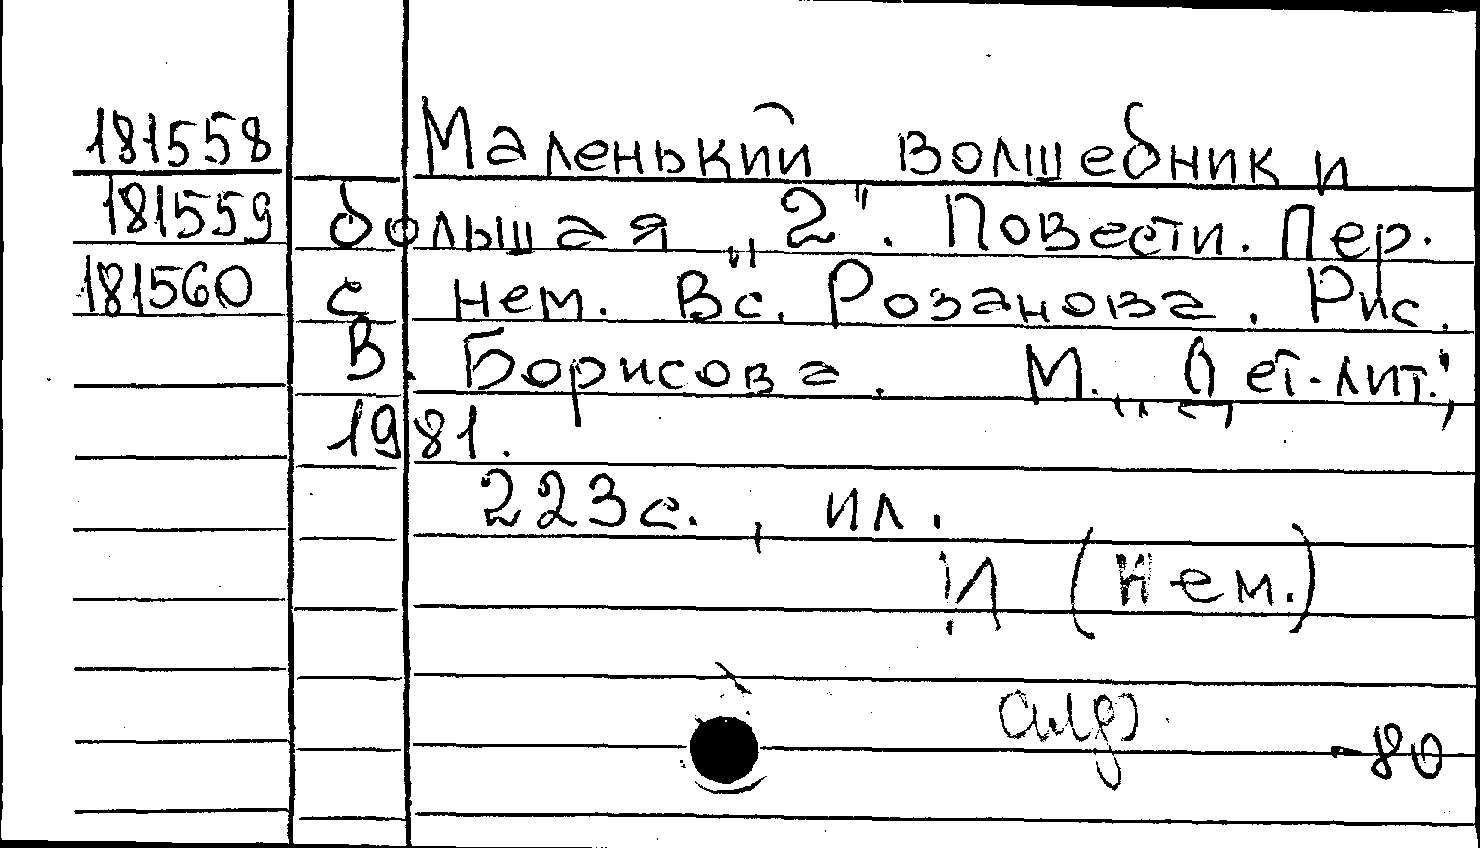 181558 Маленький волшебник и
181559 большая „2". Повести. Пер.
181560 с нем. Вс. Розанова. Рис.
В. Борисова. М. „Дет. лит.",
1981.
223с., ил.
И (Нем.)
алф
-80